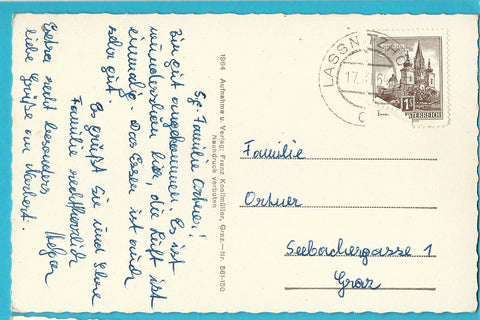 Sg. Familie Ortner!
Bin gut angekommen. Es ist
wunderschön hier, die Luft ist
einmalig. Das Essen ist auch
sehr gut.
Es grüßt Sie und Ihre
Familie recht herzlich
Helga
Extra recht besonders
liebe Grüße an Norbert.
1964 Aufnahme u. Verlag: Franz Knollmüller, Graz.—Nr. 561-150
Nachdruck verboten
LASSN
17.
1S
ERREICH
Familie
Ortner
Seebachergasse 1
Graz